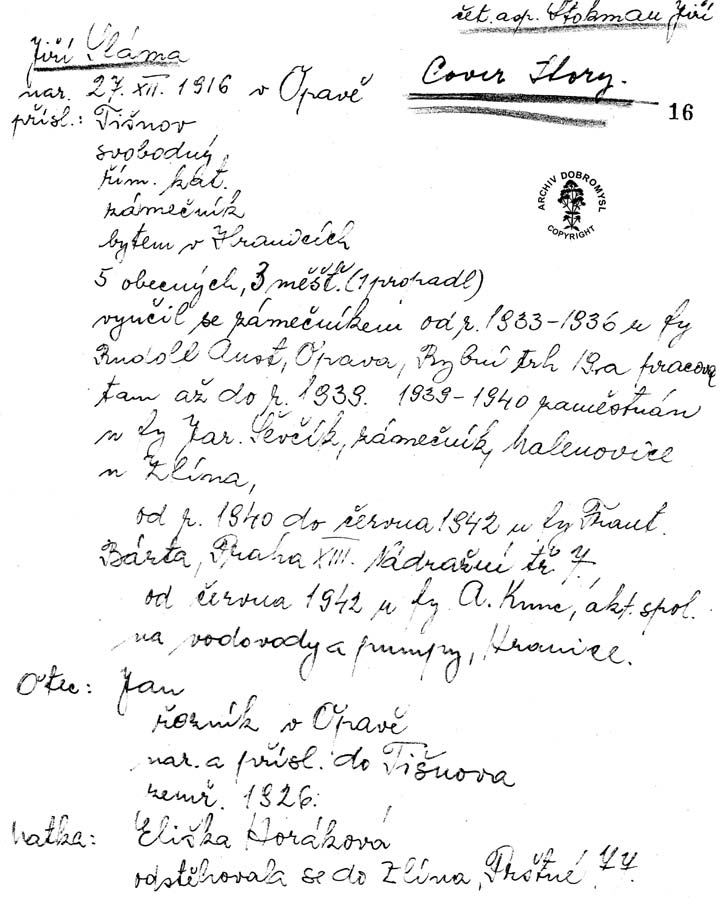 čet. asp. Stokman Jiří
Jiří Sláma
Cover Story.
nar. 27. XII. 1916 v Opavě
16
přísl.: Tišnov
svobodný
řím. kat.
zámečník
bytem v Hranicích
5 obecných, 3 měšť. (1 propadl)
vyučil se zámečníkem od r. 1933-1936 u fy
Rudolf Aust, Opava, Rybní trh 19, a pracoval
tam až do r. 1939. 1939-1940 zaměstnán
u fy Jar. Ševčík, zámečník, Malenovice
u Zlína,
od r. 1940 do června 1942 u fy Frant.
Bárta, Praha XIII. Nádražní tř 7.
od června 1942 u fy A. Kunc, akt. spol.
na vodovody a pumpy, Hranice.
Otec: Jan
řezník v Opavě
nar. a přísl. do Tišnova
zemř. 1926.
Matka: Eliška Horáková
odstěhovala se do Zlína, Prštné 77.
ARCHIV DOBROMYSL
COPYRIGHT